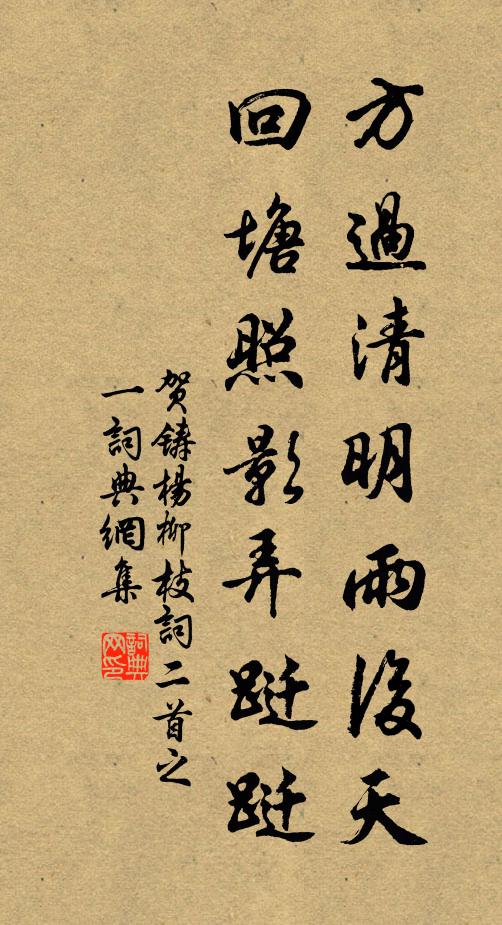 方過清明雨後天
回塘照影弄跹跹
贺鑄楊柳枝詞二首之
一詞典網集
詞典
网印